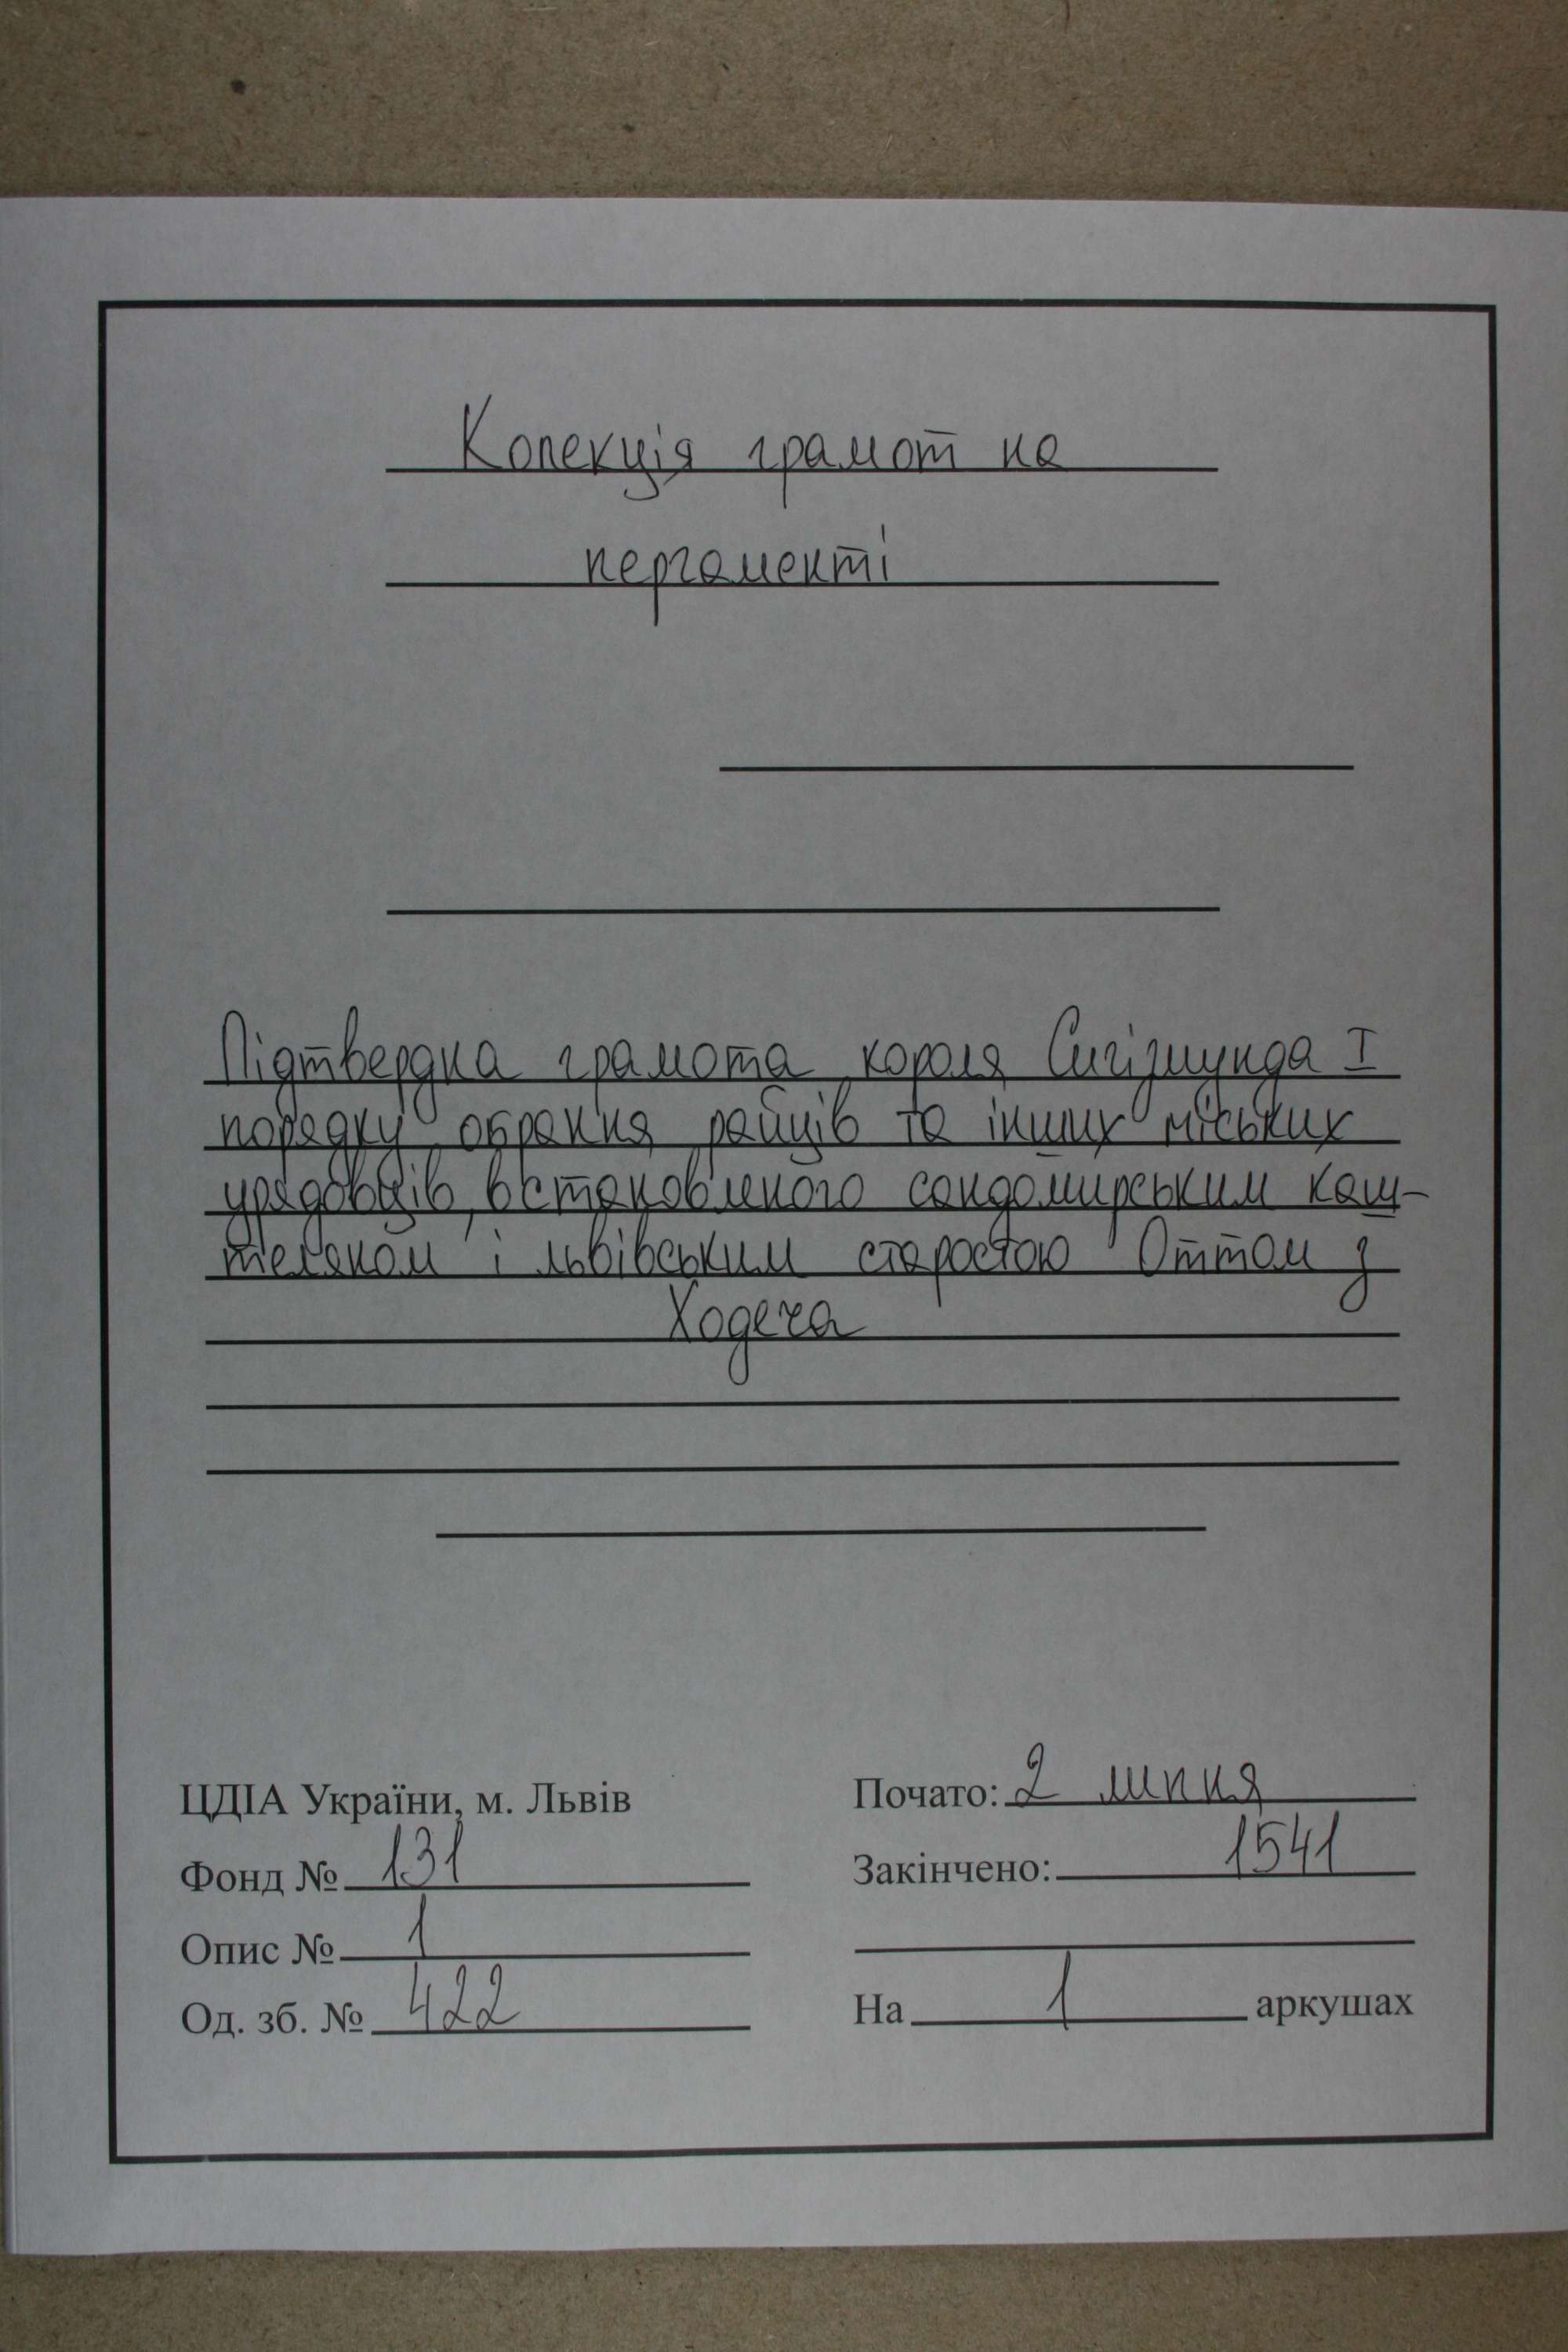 Колекція грамот на
пергаменті
Підтвердна грамота короля Сигізмунда I
порядку обрання райців та інших міських
урядовців, встановленого сандомирським каш-
теляном і львівським старостою Оттом з
Ходеча
ЦДІА України, м. Львів
Почато: 2 липня
Фонд № 131
Закінчено: 1541
Опис № 1
Од. зб. № 422
На 1 аркушах